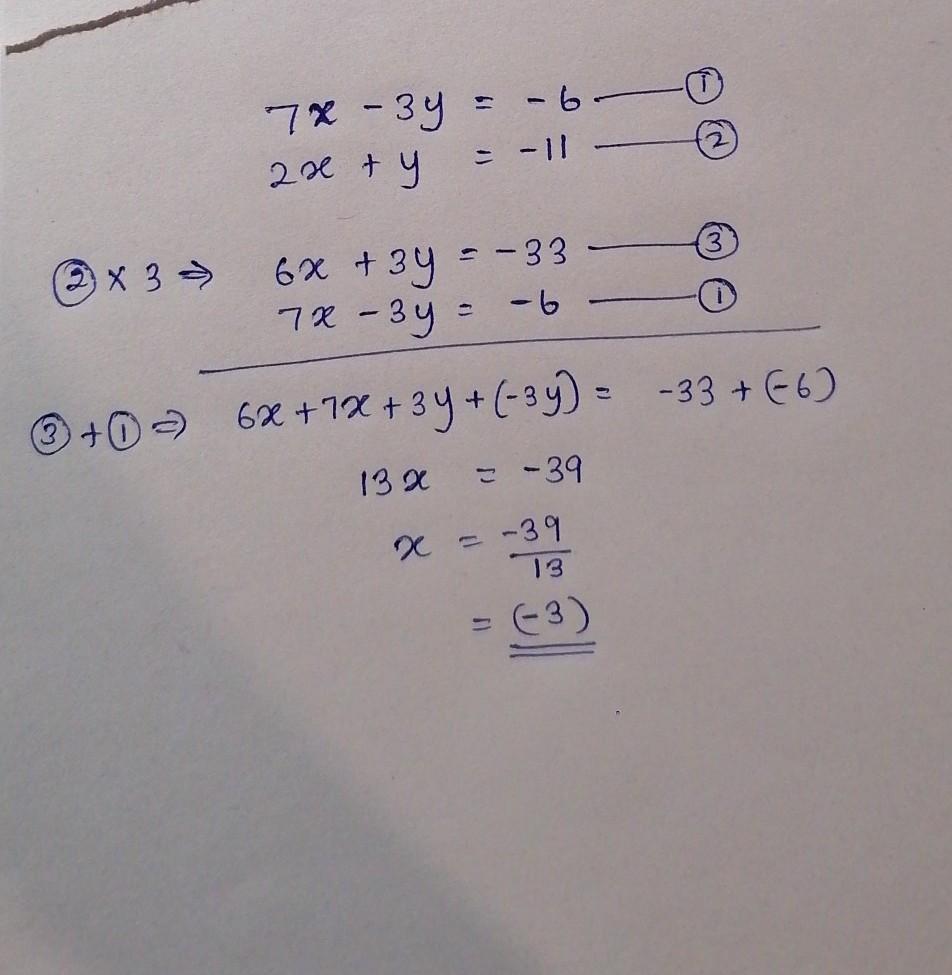 7x - 3y = -6 —— ①
2x + y = -11 —— ②
② × 3 ⇒ 6x + 3y = -33 —— ③
7x - 3y = -6 —— ①
③ + ① ⇒ 6x + 7x + 3y + (-3y) = -33 + (-6)
13x = -39
x = -39/13
= (-3)